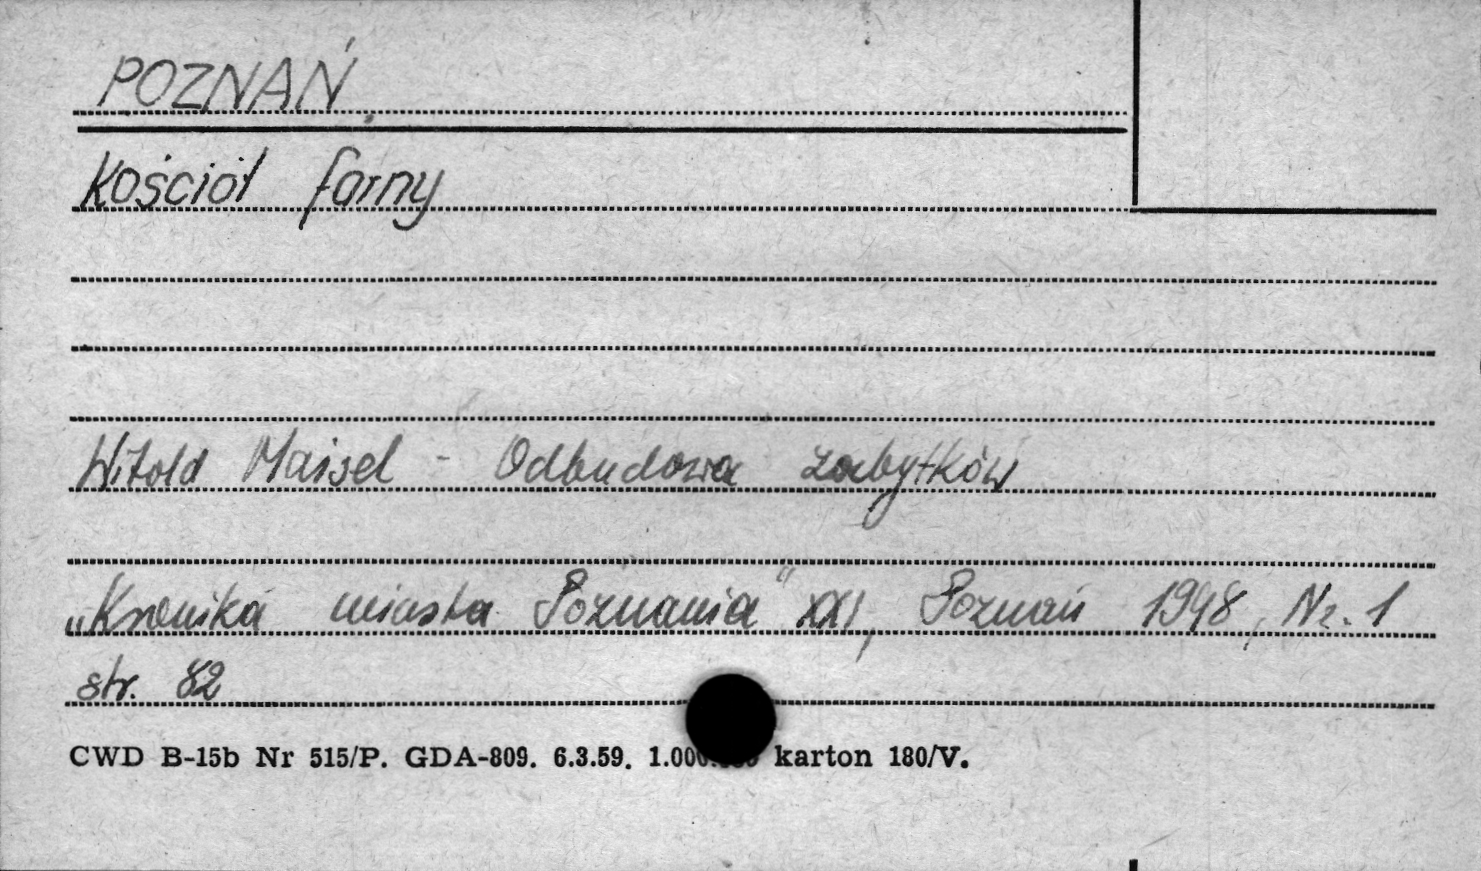 POZNAŃ
Kościół farny
Witold Maisel - Odbudowa zabytków
„Kronika miasta Poznania" XXI, Poznań 1948, Nr. 1
str. 82
CWD B-15b Nr 515/P. GDA-809. 6.3.59. karton 180/V.